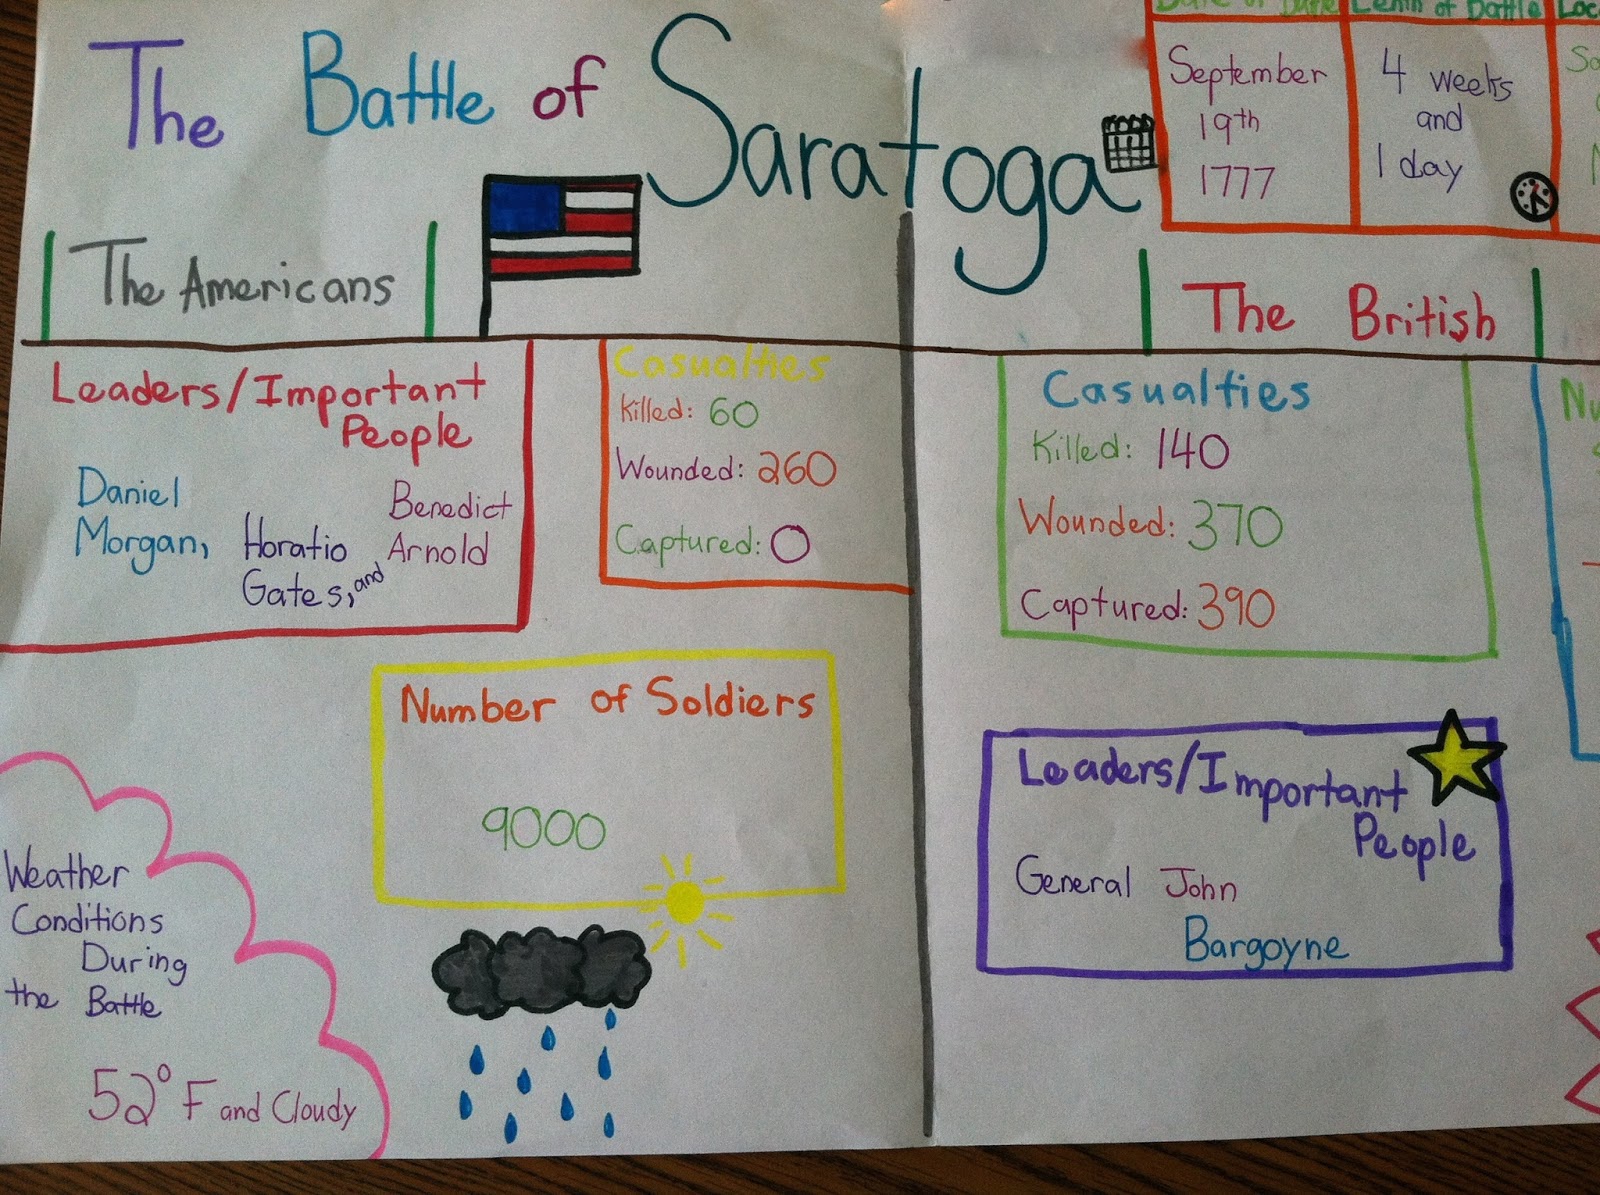 The Battle of Saratoga
Date of Battle
September
19th
1777
of Battle
4 weeks
and
1 day
The Americans
Leaders/Important
People
Daniel
Morgan,
Horatio
Gates, and
Benedict
Arnold
Casualties
Killed: 60
Wounded: 260
Captured: 0
Number of Soldiers
9000
Weather
Conditions
During
the Battle
52° F and Cloudy
The British
Casualties
Killed: 140
Wounded: 370
Captured: 390
Leaders/Important
People
General John
Bargoyne